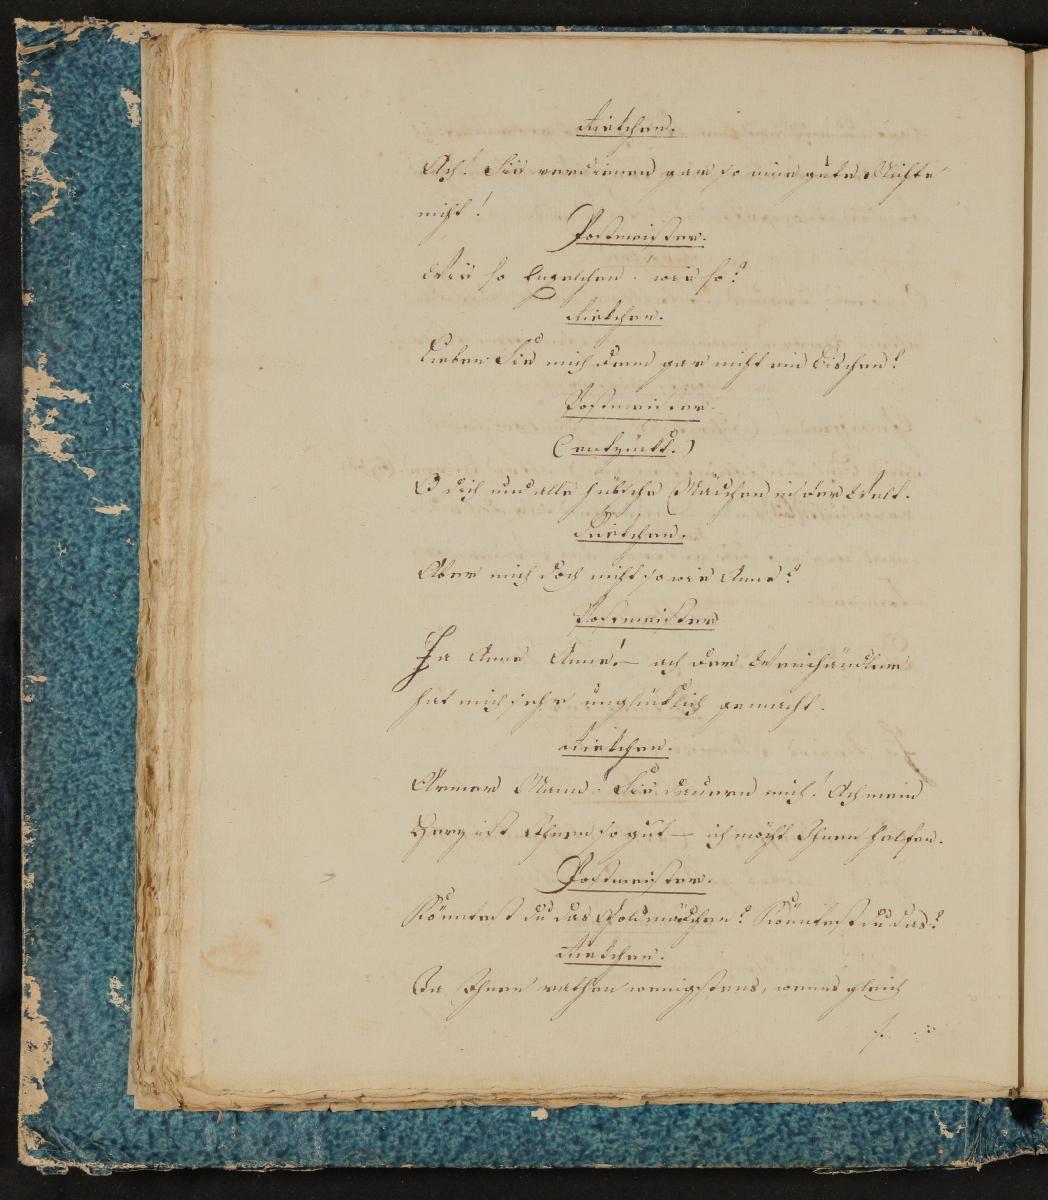 Fiekchen.
Ach! Sie verdienen gar so eine gute Nichte
nicht!
Postmeister.
Wie so Engelchen! wie so?
Fiekchen.
Lieben Sie mich denn gar nicht ein Bischen?
Postmeister.
(entzückt.)
O dich und alle hübsche Mädchen in der Welt.
Fiekchen.
Aber mich doch nicht so wie Anne?
Postmeister
Ja Anne Anne! — ach der Weinhändler
hat mich sehr unglücklich gemacht.
Fiekchen.
Armer Mann! Sie dauern mich! Ach mein
Herz ist Ihnen so gut — ich möcht Ihnen helfen.
Postmeister.
Könntest du das Goldmädchen? Könntest du das?
Fiekchen.
Ja Ihnen rathen wenigstens, wenns gleich